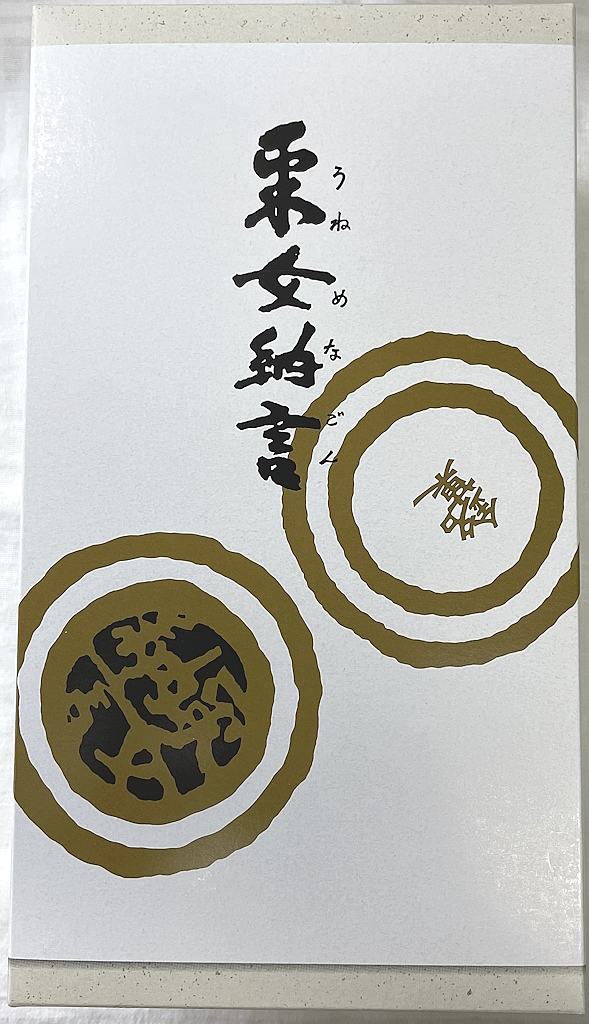 栗女納言
うねめなごん